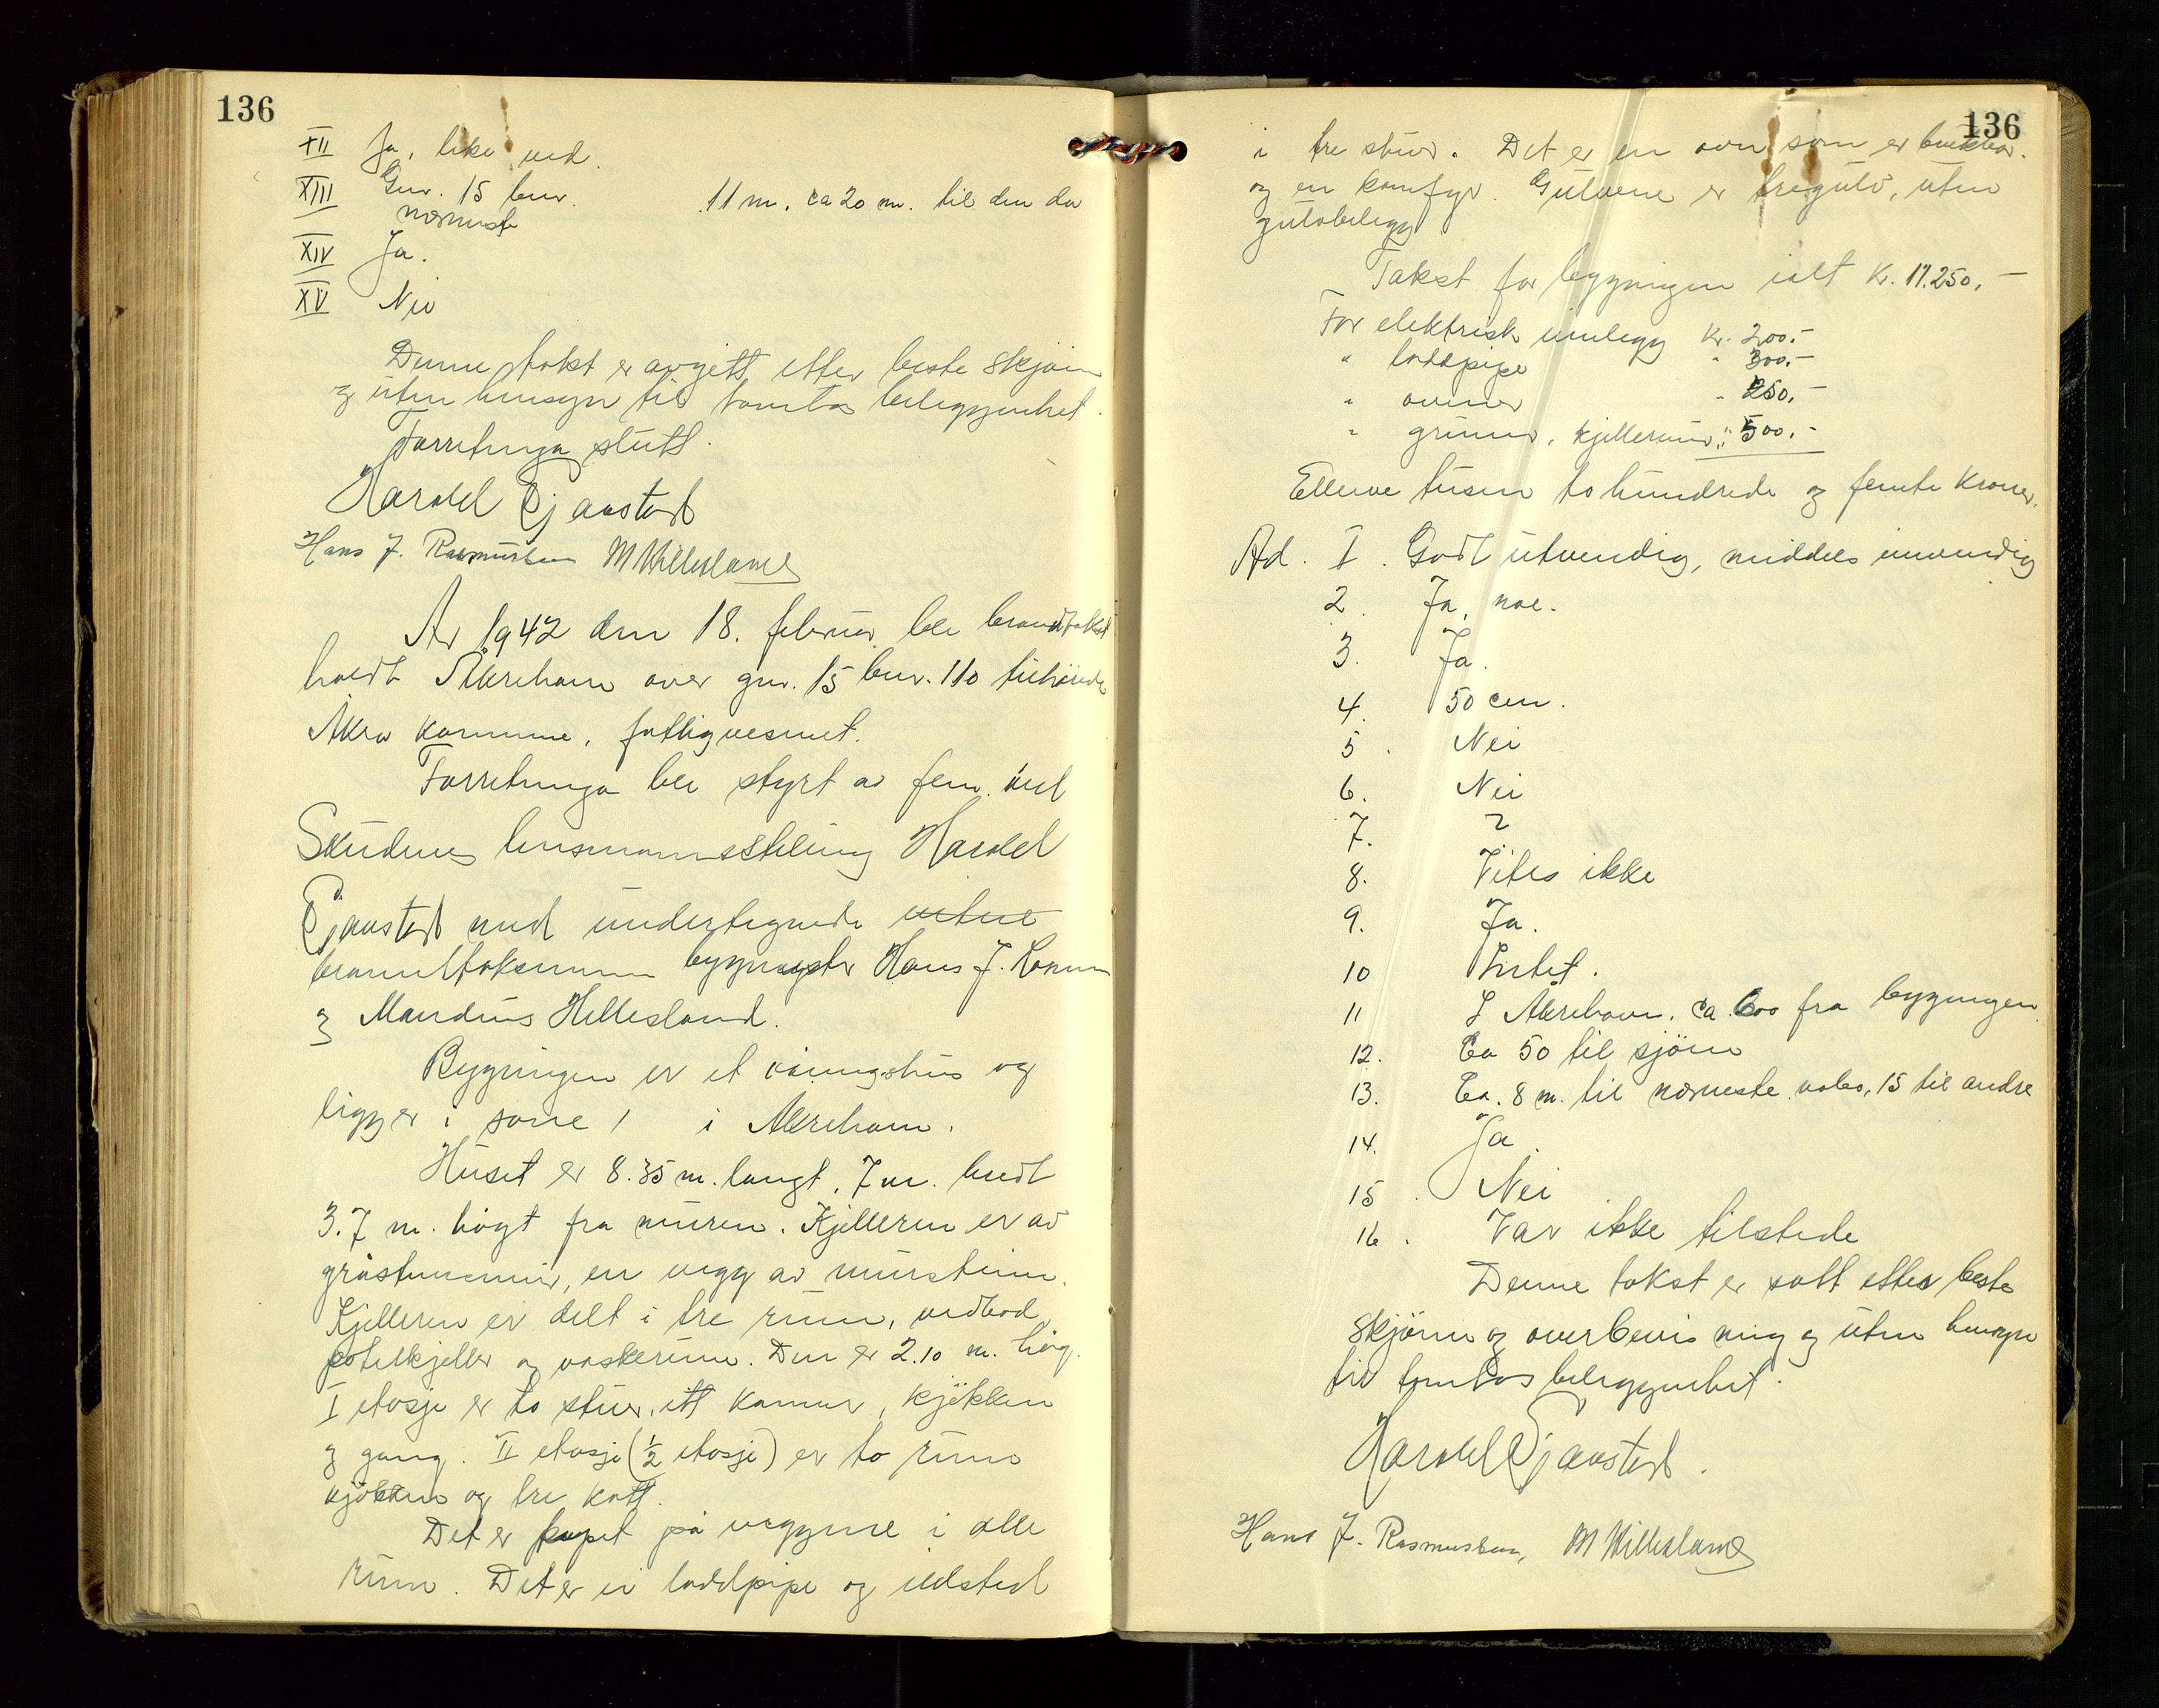 136
XII Ja, like ved.
XIII Gnr. 15 bnr. 11 m. ca 20 m. til den da
nærmeste
XIV Ja.
XV Nei
Denne takst er avgjett etter beste skjönn
og uten hensyn til tomtas beliggenhet.
Forretninga slutt.
Harald Gjaustad
Hans J. Rasmussen M Hillesland
År 1942 den 18. februar ble branntakst
holdt Åkrehavn over gnr. 15 bnr. 110 tilhörende
Åkra kommune, fattigvesenet.
Forretninga ble styrt av fem. ved
Skudenes lensmannsstilling Harald
Gjaustad med undertegnede vitne
branntaksmenn bygmester Hans J.
og Mandius Hillesland.
Bygningen er et våningshus og
ligger i sone 1 i Åkrehavn.
Huset er 8.35 m. langt, 7 m. bredt
3.7 m. högt fra muren. Kjelleren er av
gråsteinsmur, en vegg av murstein.
Kjelleren er delt i tre rum, vedbod
potetkjeller og vaskerum. Den er 2.10 m. hög.
I etasje er to stuer, ett kammer, kjökken
og gang. II etasje (1/2 etasje) er to rum
kjökken og tre kott.
Det er papet på veggene i alle
rum. Det er ei loddpipe og ildsted
136
i tre stuer. Det er en ovn som er brukbar.
og en komfyr. Gulvene er tregulv, uten
gulvbelegg
Takst for bygningen ialt Kr. 11.250,-
For elektrisk innlegg Kr. 200.-
" loddpipe " 300.-
" ovner " 250.-
" grunn, kjellerum " 500.-
Elleve tusen to hundrede og femti kroner.
Ad. I. Godt utvendig, middels innvendig
2. Ja, noe.
3. Ja.
4. 50 cm.
5. Nei
6. Nei
7. 2
8. Vites ikke
9. Ja.
10 Intet.
11 I Åkrehavn. ca. 600 fra bygningen
12. Ca 50 til sjöen
13. Ca. 8 m. til nærmeste nabo, 15 til andre
14. Ja.
15. Nei
16. Var ikke tilstede
Denne takst er satt etter beste
skjönn og overbevisning og uten hensyn
til tomtas beliggenhet.
Harald Gjaustad.
Hans J. Rasmussen, M Hillesland